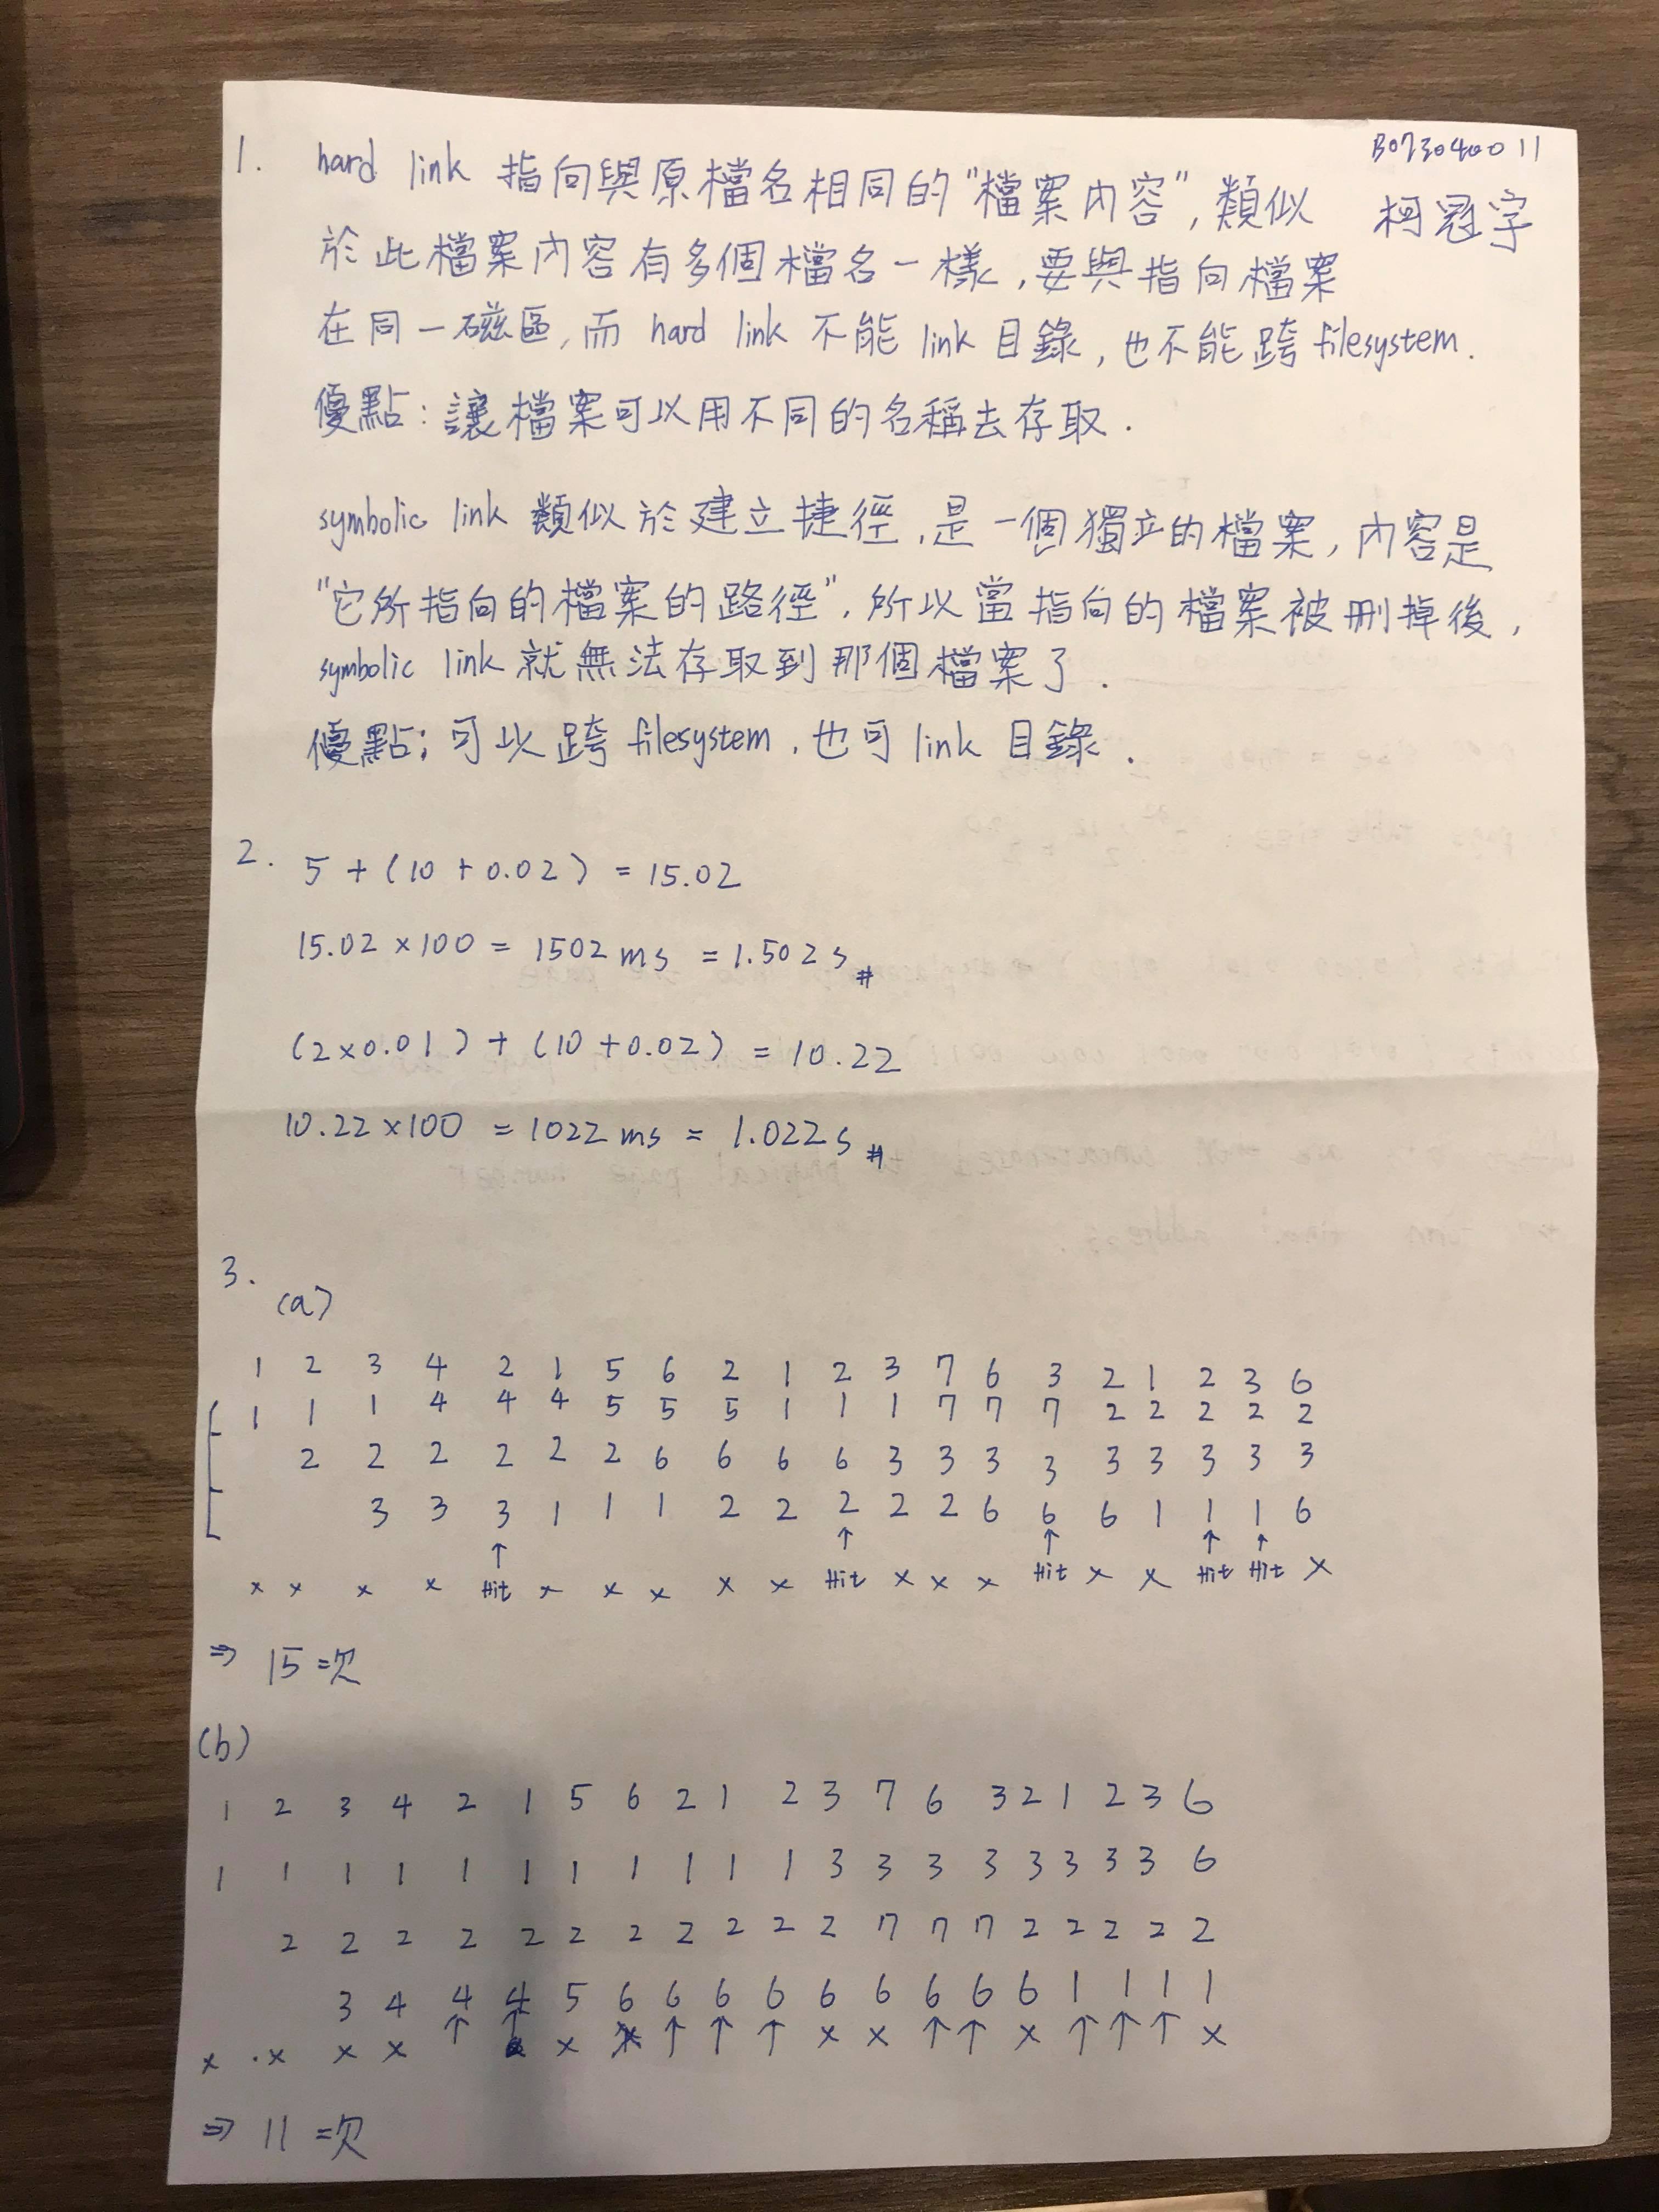 B073040011
柯冠宇
1. hard link 指向與原檔名相同的"檔案內容",類似
於此檔案內容有多個檔名一樣,要與指向檔案
在同一磁區,而 hard link 不能 link 目錄,也不能跨 filesystem.
優點:讓檔案可以用不同的名稱去存取.
symbolic link 類似於建立捷徑,是一個獨立的檔案,內容是
"它所指向的檔案的路徑",所以當指向的檔案被刪掉後,
symbolic link 就無法存取到那個檔案了.
優點:可以跨 filesystem,也可 link 目錄.
2. 5 + (10 + 0.02) = 15.02
15.02 × 100 = 1502 ms = 1.502 s #
(2×0.01) + (10 + 0.02) = 10.22
10.22 × 100 = 1022 ms = 1.022 s #
3.
(a)
1 2 3 4 2 1 5 6 2 1 2 3 7 6 3 2 1 2 3 6
1 1 1 4 4 4 5 5 5 1 1 1 7 7 7 2 2 2 2 2
2 2 2 2 2 2 6 6 6 6 3 3 3 3 3 3 3 3 3
3 3 3 1 1 1 2 2 2 2 2 6 6 6 1 1 1 6
↑ ↑ ↑ ↑ ↑
× × × × Hit × × × × × Hit × × × Hit × × Hit Hit ×
⇒ 15次
(b)
1 2 3 4 2 1 5 6 2 1 2 3 7 6 3 2 1 2 3 6
1 1 1 1 1 1 1 1 1 1 1 3 3 3 3 3 3 3 3 6
2 2 2 2 2 2 2 2 2 2 2 7 7 7 2 2 2 2 2
3 4 4 4 5 6 6 6 6 6 6 6 6 6 1 1 1 1
× × × × ↑ ↑ × × ↑ ↑ ↑ × × ↑ ↑ × ↑ ↑ ↑ ×
⇒ 11次